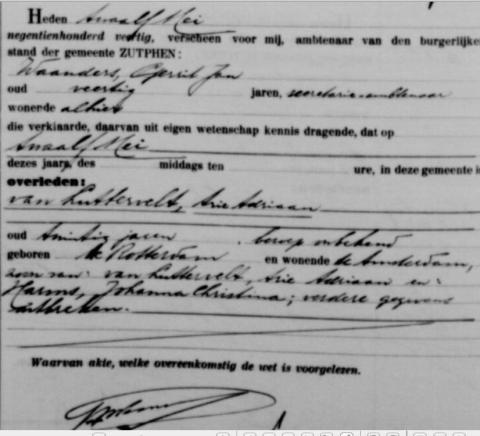 Heden twaalf Mei
negentienhonderd veertig, verscheen voor mij, ambtenaar van den burgerlijke
stand der gemeente ZUTPHEN:
Waanders, Gerrit Jan
oud veertig jaren, secretarie-ambtenaar
wonende alhier
die verklaarde, daarvan uit eigen wetenschap kennis dragende, dat op
twaalf Mei
dezes jaars, des middags ten ure, in deze gemeente is
overleden:
van Luttervelt, Arie Adriaan
oud twintig jaren, beroep onbekend
geboren te Rotterdam en wonende te Amsterdam,
zoon van: van Luttervelt, Arie Adriaan en:
Harms, Johanna Christina; verdere gegevens
ontbreken.
Waarvan akte, welke overeenkomstig de wet is voorgelezen.